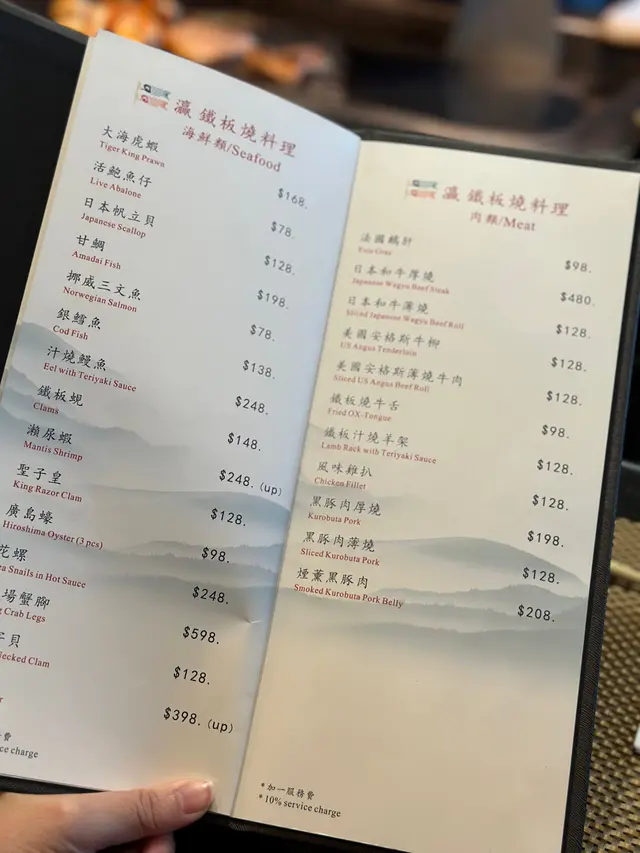 瀛 鐵板燒料理
海鮮類/Seafood
大海虎蝦 $168.
Tiger King Prawn
活鮑魚仔 $78.
Live Abalone
日本帆立貝 $128.
Japanese Scallop
甘鯛 $198.
Amadai Fish
挪威三文魚 $78.
Norwegian Salmon
銀鱈魚 $138.
Cod Fish
汁燒鰻魚 $248.
Eel with Teriyaki Sauce
鐵板蜆 $148.
Clams
瀨尿蝦 $248. (up)
Mantis Shrimp
聖子皇 $128.
King Razor Clam
廣島蠔 $98.
Hiroshima Oyster (3 pcs)
花螺 $248.
Snails in Hot Sauce
場蟹腳 $598.
Crab Legs
貝 $128.
Necked Clam
$398. (up)
費
charge
瀛 鐵板燒料理
肉類/Meat
法國鵝肝 $98.
Foie Gras
日本和牛厚燒 $480.
Japanese Wagyu Beef Steak
日本和牛薄燒 $128.
Sliced Japanese Wagyu Beef Roll
美國安格斯牛柳 $128.
US Angus Tenderloin
美國安格斯薄燒牛肉 $128.
Sliced US Angus Beef Roll
鐵板燒牛舌 $98.
Fried OX-Tongue
鐵板汁燒羊架 $128.
Lamb Rack with Teriyaki Sauce
風味雞扒 $128.
Chicken Fillet
黑豚肉厚燒 $198.
Kurobuta Pork
黑豚肉薄燒 $128.
Sliced Kurobuta Pork
煙薰黑豚肉 $208.
Smoked Kurobuta Pork Belly
*加一服務費
*10% service charge